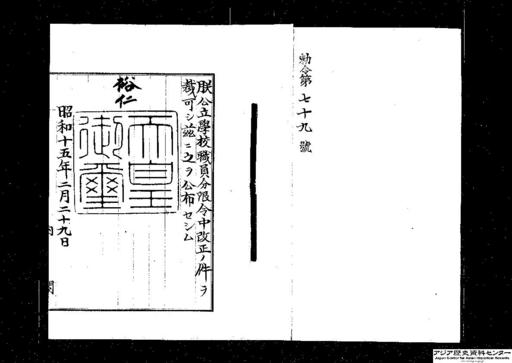 勅令第七十九號
朕公立學校職員分限令中改正ノ件ヲ
裁可シ茲ニ之ヲ公布セシム
裕仁
天皇御璽
昭和十五年二月二十九日
内閣
アジア歴史資料センター
Japan Center for Asian Historical Records